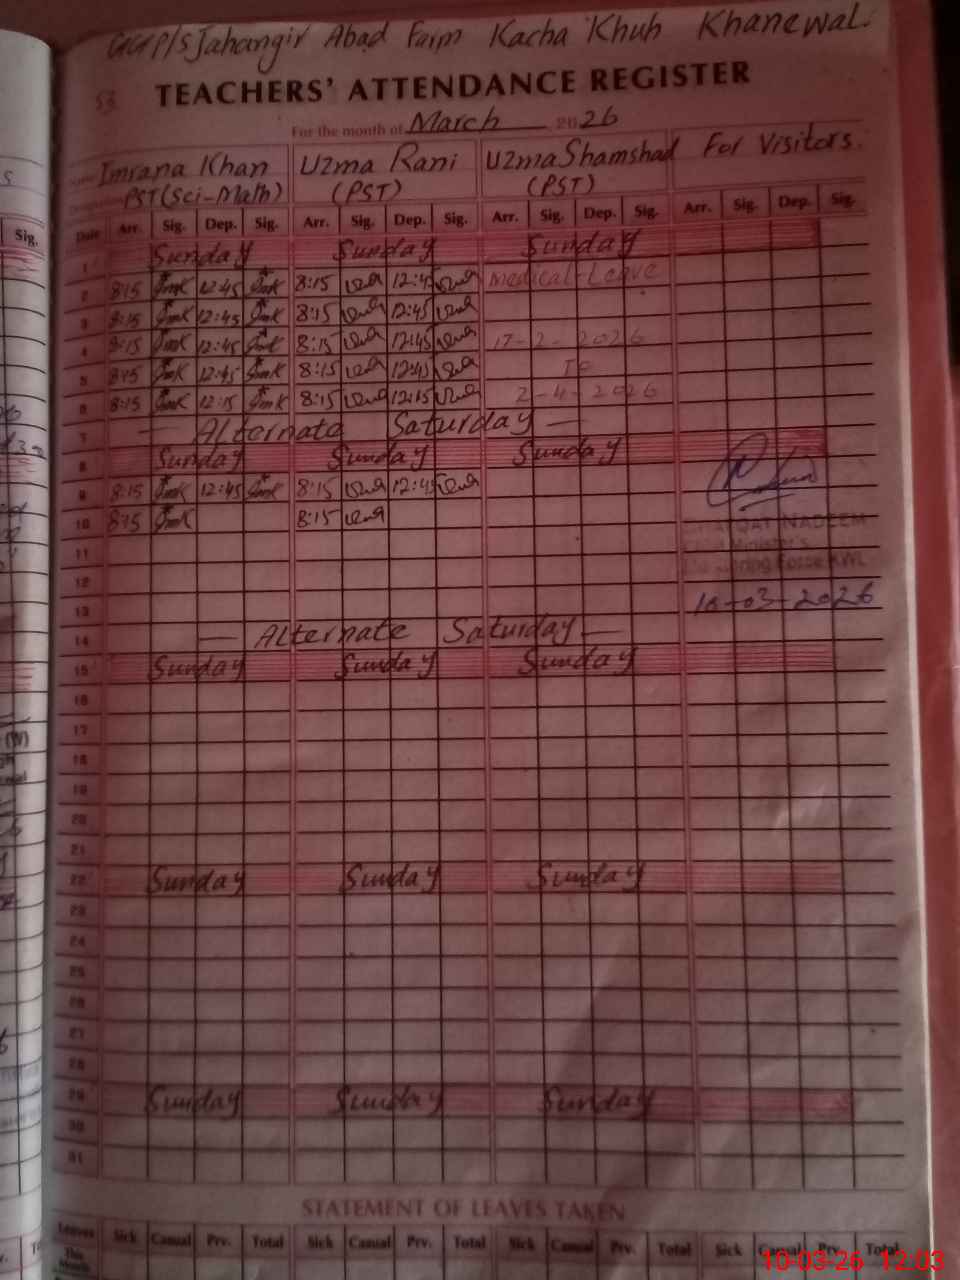 GGP/S Jahangir Abad Farm Kacha Khuh Khanewal.
53
TEACHERS' ATTENDANCE REGISTER
For the month of March 2026
Imrana Khan Uzma Rani Uzma Shamshad For Visitors.
PST(Sci-Math) (PST) (PST)
Date Arr. Sig. Dep. Sig. Arr. Sig. Dep. Sig. Arr. Sig. Dep. Sig. Arr. Sig. Dep. Sig.
1 Sunday Sunday Sunday
2 8:15 12:45 8:15 12:45 Medical Leave
3 8:15 12:45 8:15 12:45
4 8:15 12:45 8:15 12:45 17-2-2026
5 8:15 12:45 8:15 12:45 To
6 8:15 12:15 8:15 12:15 2-4-2026
7 — Alternate Saturday —
8 Sunday Sunday Sunday
9 8:15 12:45 8:15 12:45
10 8:15 8:15
NADEEM
11
Minister's
12
Force KWL
13 10-03-2026
14 — Alternate Saturday —
15 Sunday Sunday Sunday
16
17
18
19
20
21
22 Sunday Sunday Sunday
23
24
25
26
27
28
29 Sunday Sunday Sunday
30
31
STATEMENT OF LEAVES TAKEN
Leaves Sick Casual Prv. Total Sick Casual Prv. Total Sick Casual Prv. Total Sick Casual Prv. Total
This Month
10-03-26 12:03
Sig.